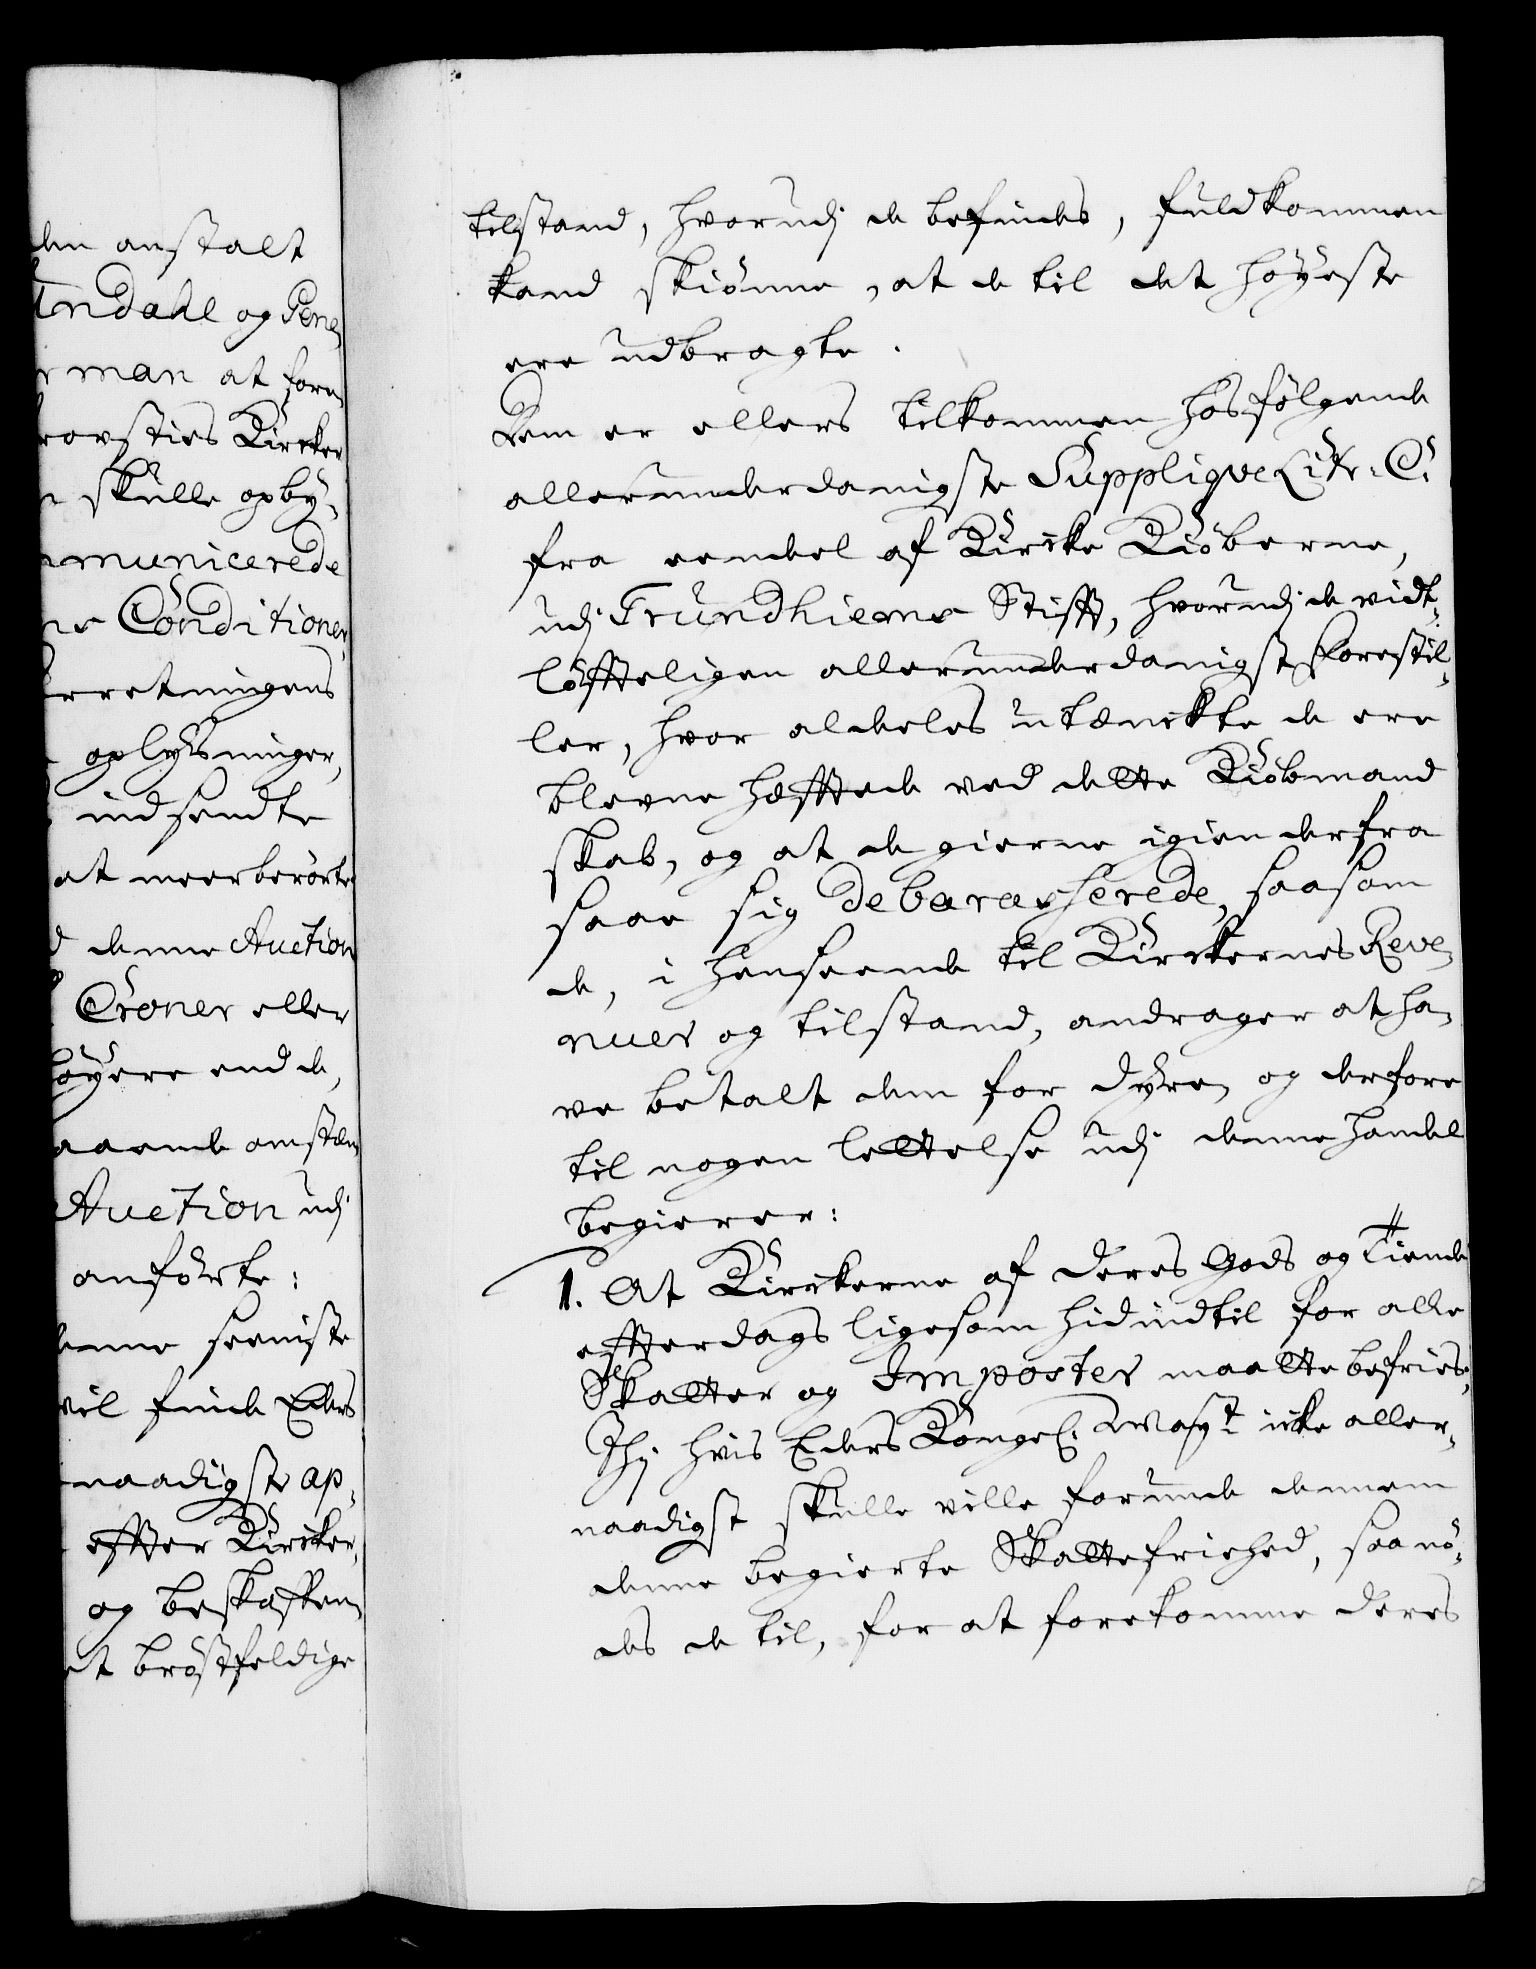 den anstalt
Indahl og Pene,
r man at fore,
rovsties Kircker
n skulle opby,
mmunicerede
ne Conditioner,
rretningens
oplysninger,
indsendte
at meerberörte
d denne Auction
Croner eller
höyere end de,
aaende omstæn,
Auction udj
anförte:
denne seeniste
vil finde Eders
naadigste ap,
effter Kircker,
og beskaffen,
et bröstfeldige
tilstand, hvorudj de befindes, fuldkommen
kand skiönne, at de til det höyeste
ere udbragte.
Dem er ellers tilkommen hosfölgende
allerunderdanigste Supplique Litr: C.
fra eendeel af Kircke Kiöberne,
udj Trundhiems Stifft, hvorudj de vidt,
löffteligen allerunderdanigst forestil,
ler, hvor aldeles utænckte de ere
blevne hefftede ved dette Kiöbmand
skab, og at de gierne igien derfra
saae sig debarasserede, saasom
de, i henseende til Kirckernes Reve,
nuer og tilstand, andrager at ha,
ve betalt dem for dyre, og derfore
til nogen lettelse udj denne handel
begierer:
1. At Kirckerne af deres Gods og Tiende
effterdags ligesom hidindtil for alle
Skatter og Imposter maatte befries,
Thj hvis Eders Kongel: Mayt icke aller,
naadigst skulle ville forunde dennem
denne begierte Skattefriehed, saa nö,
des de til, for at forekomme deres